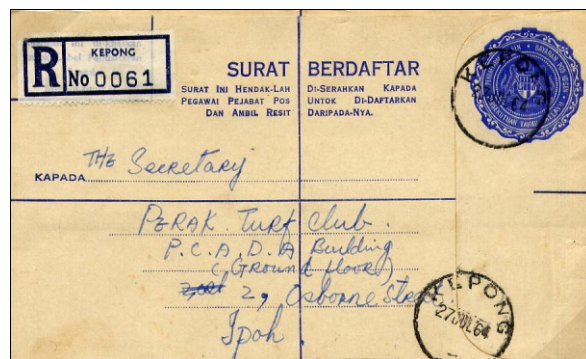 R KEPONG
No 0061
SURAT BERDAFTAR
SURAT INI HENDAK-LAH DI-SERAHKAN KAPADA
PEGAWAI PEJABAT POS UNTOK DI-DAFTARKAN
DAN AMBIL RESIT DARIPADA-NYA.
KEPONG
KAPADA The Secretary
PERAK Turf Club.
P.C.A.D.A Building
(Ground floor)
2, Osborne Street
Ipoh
KEPONG
27 JUL 64